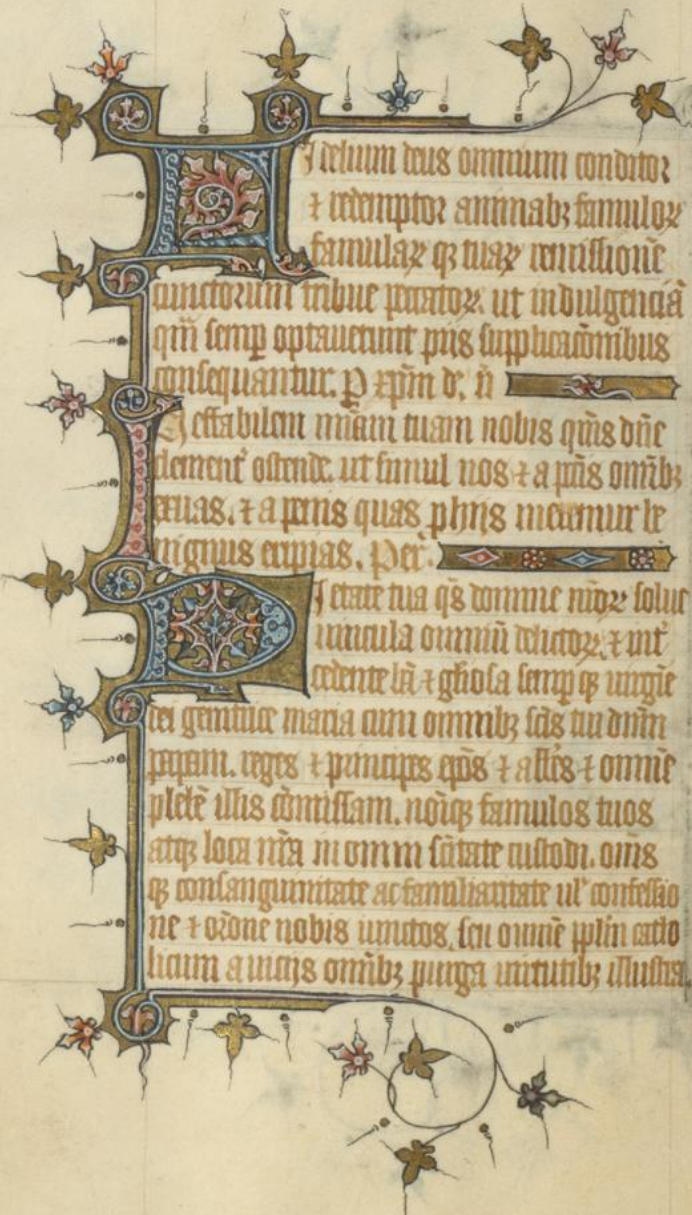 Fidelium deus omnium conditor
⁊ redemptor animabꝫ famuloꝝ
famulaꝝ qꝫ tuaꝝ remissionē
cunctorum tribue peccatoꝝ. ut indulgenciā
qm̄ semꝑ optauerunt piis supplicac̄onibus
consequantur. P xp̄m d. n̄
Ineffabilem miām tuam nobis qm̄s dn̄e
clement᷒ ostende. ut simul nos ⁊ a pc̄is omībꝫ
exuas. ⁊ a penis quas ꝓ hiis meremur be
nignus eripias. Per.
Pietate tua qs̄ domine nr̄oꝝ solue
uincula omniū delictoꝝ. ⁊ int̄
cedente bā ⁊ gl̄iosa semꝑ qꝫ uirgīe
dei genitrice maria cum omnibꝫ sc̄is tuis dn̄m
papam. reges ⁊ principes ep̄os ⁊ abb̄es ⁊ omnē
plebē illis cōmissam. nosqꝫ famulos tuos
atqꝫ loca nr̄a in omni sc̄itate custodi. om̄s
qꝫ consanguinitate ac familiaritate ul᷒ confessio
ne ⁊ or̄one nobis iunctos. seu omnē pp̄lm catho
licum a uiciis omībꝫ purga uirtutibꝫ illustra.